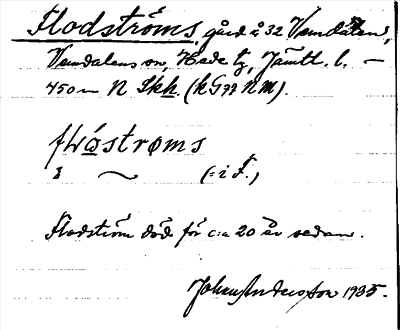 Flodströms, gård å 32 Vemdalen,
Vemdalens sn, Hede tg, Jämtl. l. —
450 m N Skh. (k G 77 N M).
flώstrøms
(= i F.)
Flodström död för c:a 20 år sedan.
Johan Andersson 1935.